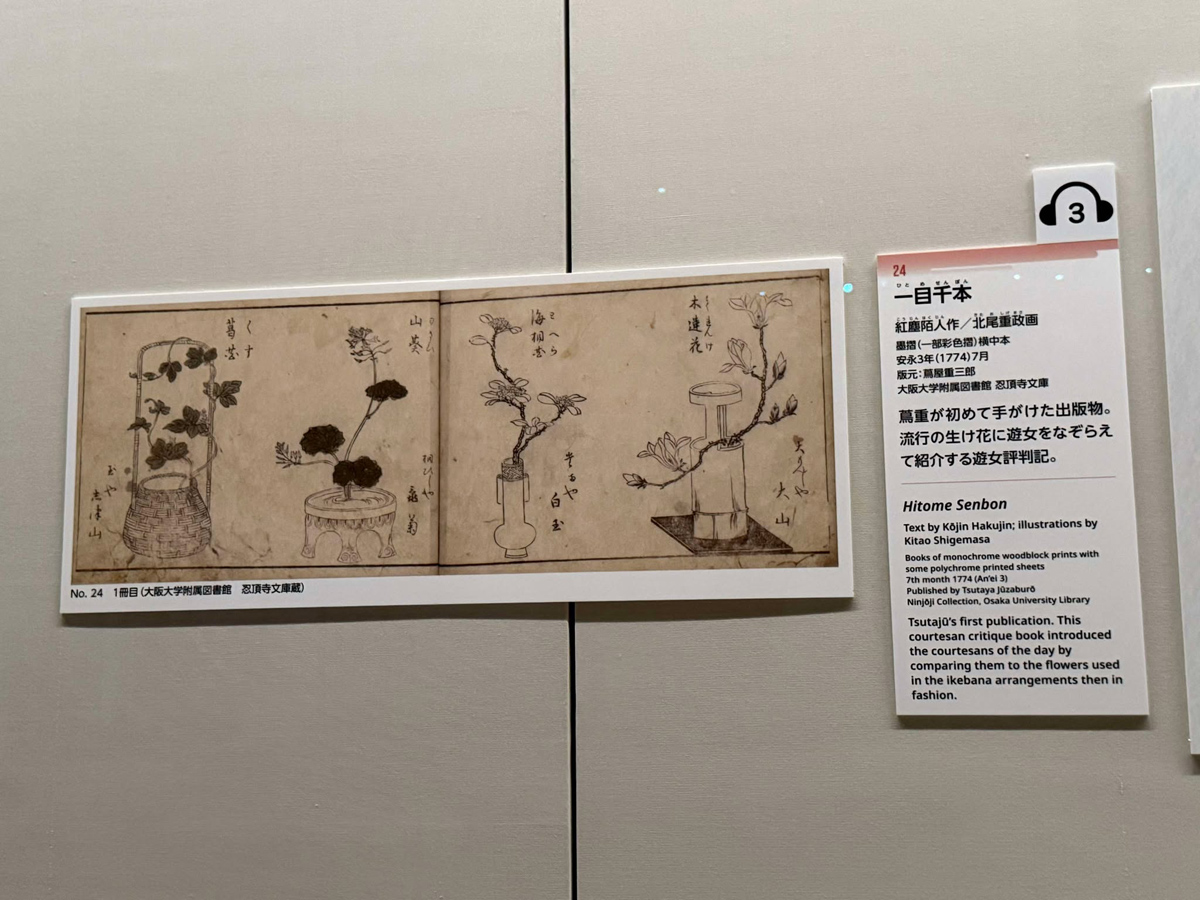 葛
くす
玉や
山
山葵
亀菊
海棠
白玉
木蓮花
もくれんけ
大山
No. 24 1冊目(大阪大学附属図書館 忍頂寺文庫蔵)
3
24
ひとめせんぼん
一目千本
こうじんはくじん きたおしげまさ
紅塵陌人作／北尾重政画
墨摺(一部彩色摺)横中本
安永3年(1774)7月
版元：蔦屋重三郎
大阪大学附属図書館 忍頂寺文庫
蔦重が初めて手がけた出版物。
流行の生け花に遊女をなぞらえ
て紹介する遊女評判記。
Hitome Senbon
Text by Kōjin Hakujin; illustrations by
Kitao Shigemasa
Books of monochrome woodblock prints with
some polychrome printed sheets
7th month 1774 (An'ei 3)
Published by Tsutaya Jūzaburō
Ninjōji Collection, Osaka University Library
Tsutajū's first publication. This
courtesan critique book introduced
the courtesans of the day by
comparing them to the flowers used
in the ikebana arrangements then in
fashion.